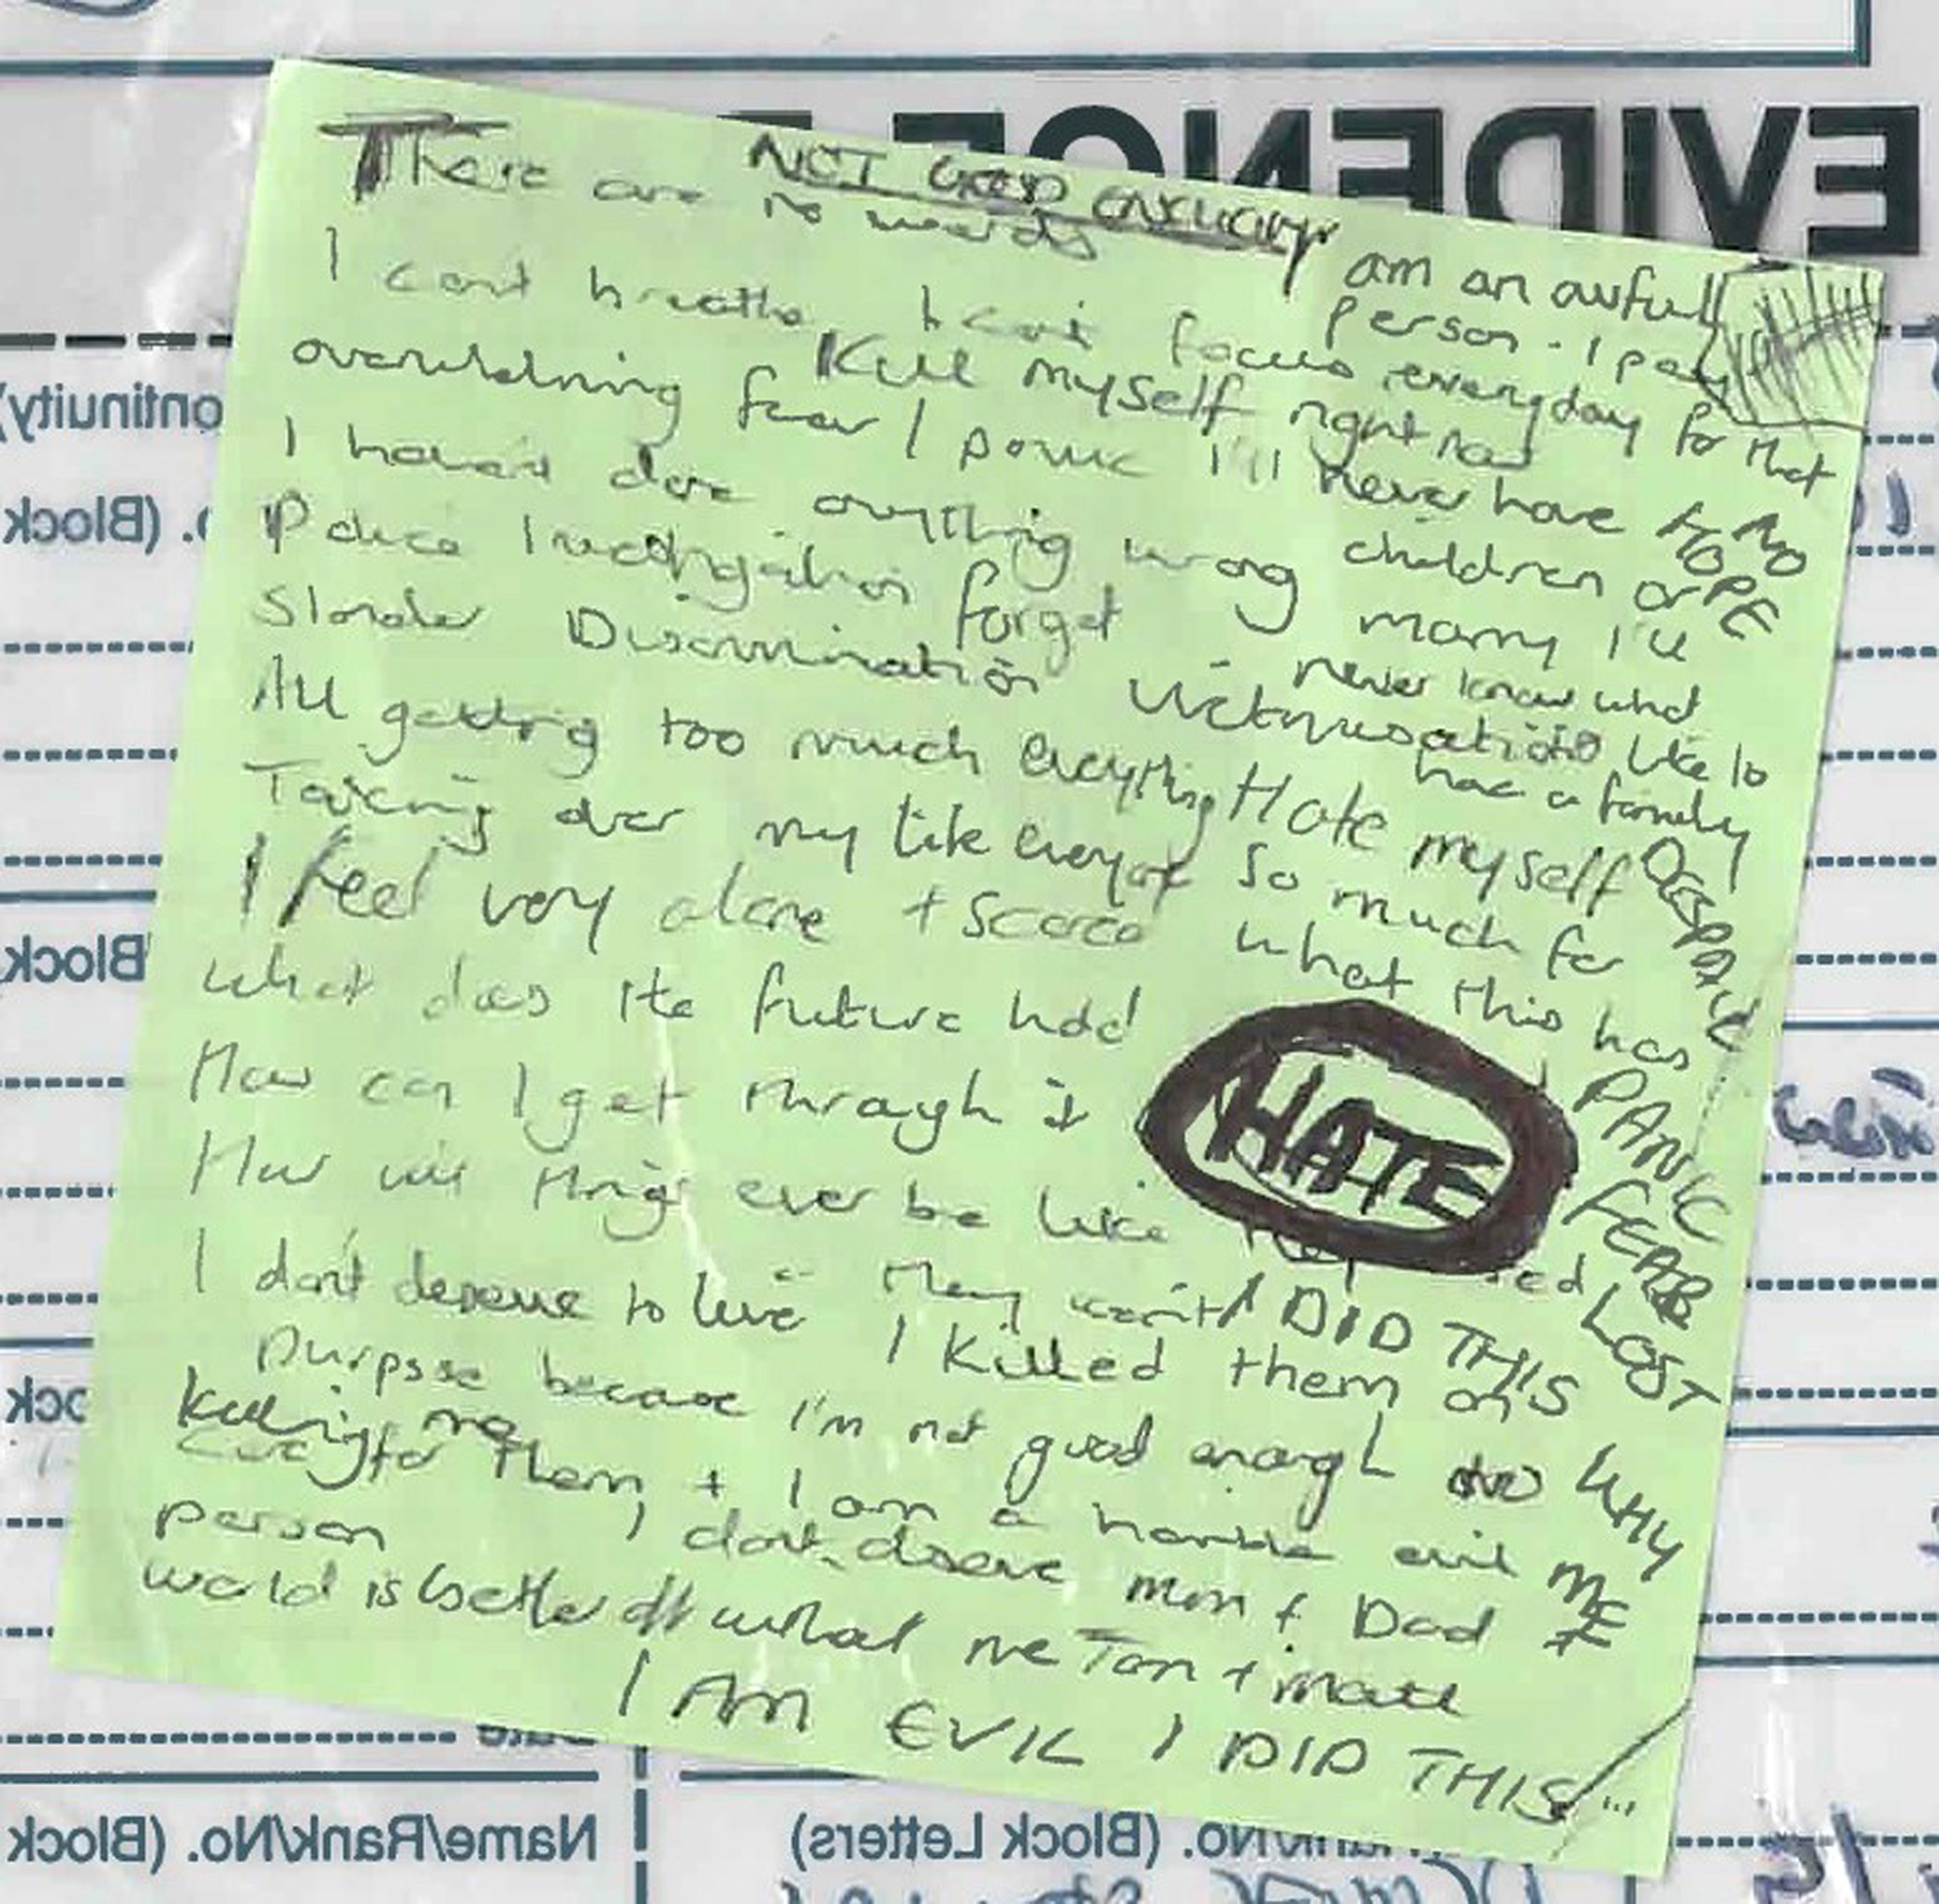 EVIDENCE
NOT GOOD ENOUGH
There are no words
I am an awful
person - I pay
everyday for that
I can't breathe I can't focus
Kill myself right now
overwhelming fear / panic
I'll never have
children or
marry I'll
never know what
like to
have a family
NO
HOPE
I haven't done anything wrong
Police Investigation forget
Slander Discrimination Victimisation
All getting too much everything
Taking over my life everyone
Hate myself
so much for
what this has
I feel very alone + scared
What does the future hold
How can I get through it
How will things ever be like
HATE
DESPAIR
PANIC
FEAR
LOST
WHY
ME
I don't deserve to live
They won't
I DID THIS
I killed them on
purpose because I'm not good enough to
care for them + I am a horrible evil
person
Killing me
I don't deserve mum + Dad
world is better off without me Tom + Matt
I AM EVIL I DID THIS
ontinuity)
o. (Block
Block
ock
Date
Name/Rank/No. (Block
Rank/No. (Block Letters)